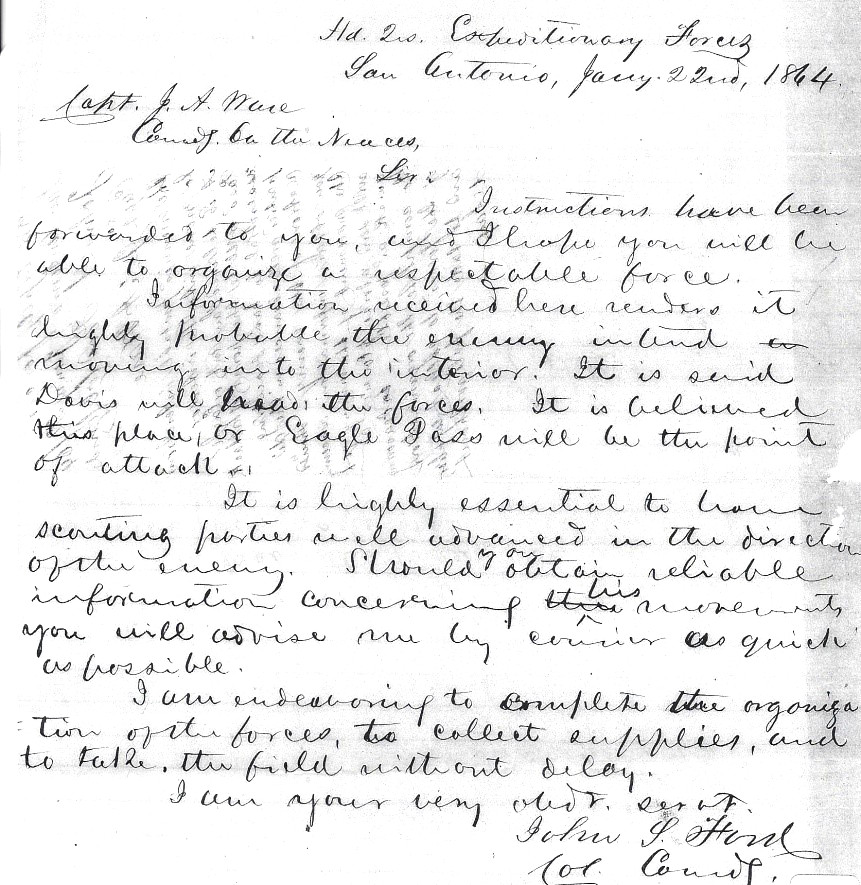 Hd. Qrs. Expeditionary Forces
San Antonio, Jany. 22nd, 1864.
Capt. J. A. Ware
Comdg. On the Nueces,
Sir:
Instructions have been
forwarded to you, and I hope you will be
able to organize a respectable force.
Information received here renders it
highly probable the enemy intend
moving into the interior. It is said
Davis will head the forces. It is believed
this place, or Eagle Pass will be the point
of attack.
It is highly essential to have
scouting parties well advanced in the direction
of the enemy. Should you obtain reliable
information concerning his movements
you will advise me by courier as quick
as possible.
I am endeavoring to complete the organiza
tion of the forces, to collect supplies, and
to take the field without delay.
I am your very obdt. servt.
John S. Ford
Col. Comdg.